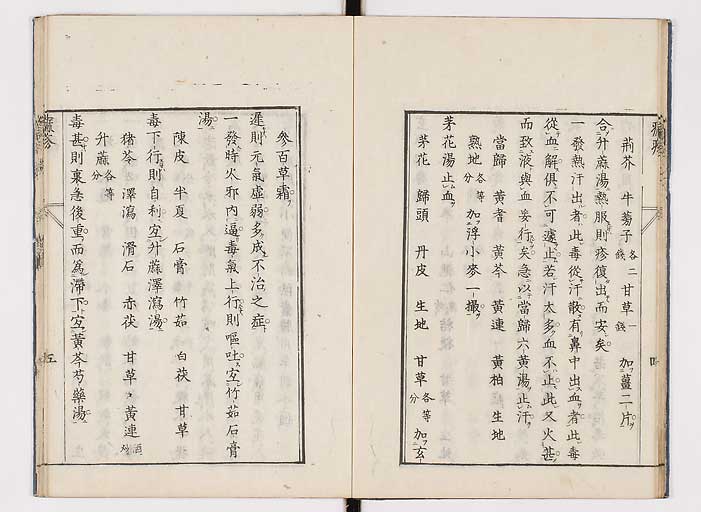 荊芥　牛蒡子各二錢　甘草一錢　加薑二片ヲ
合シ升麻湯熱服則疹復出而安矣
一發熱汗出者此毒從汗散有鼻中出血者此毒
從血解俱不可遽止若汗太多血不止此又火甚
而致液與血妄行矣急以當歸六黃湯止汗
當歸　黃耆　黃芩　黃連　黃柏　生地
熟地各等分　加浮小麥一撮
茅花湯止血
茅花　歸頭　丹皮　生地　甘草各等分　加玄
四
參百草霜
遲則元氣虛弱多成不治之症
一發時火邪內逼毒氣上行則嘔吐宜竹茹石膏
湯
陳皮　半夏　石膏　竹茹　白茯　甘草
毒下行則自利宜升麻澤瀉湯
豬苓　澤瀉　滑石　赤茯　甘草　黃連酒炒
升麻各等分
毒甚則裏急後重而爲滯下宜黃芩芍藥湯
五